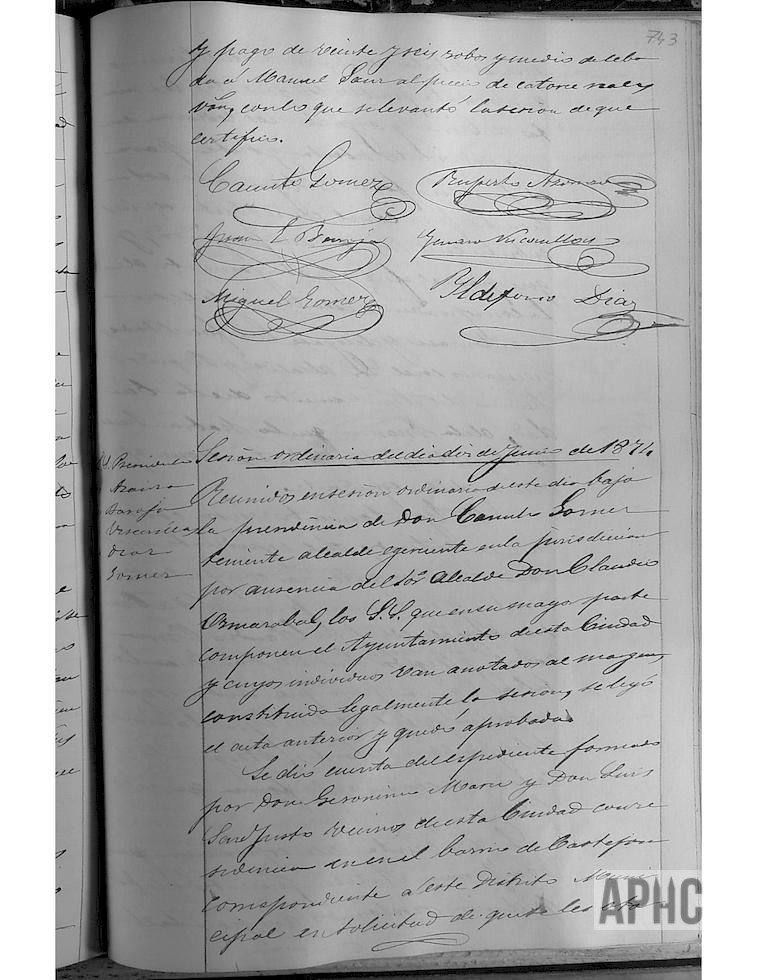 743
y pago de veinte y seis robos y medio de ceba
da á Manuel Sanz al precio de catorce reales
von, con lo que se levantó la sesion de que
certifico.
Canuto Gomez
Ruperto
Juan L Baroja
Genaro
Miguel Gomez
Ildefonso Diaz
Sesion ordinaria del dia diez de Junio de 1874
S. Presidente
Baroja
Diaz
Gomez
Reunidos en sesion ordinaria de este dia bajo
la presidencia de Don Canuto Gomez
teniente alcalde egerciente en la jurisdicion
por ausencia del Sor Alcalde Don Claudio
los S.S. que en su mayor parte
componen el Ayuntamiento de esta Ciudad
y cuyos individuos van anotados al margen,
constituida legalmente la sesion, se leyó
el acta anterior y quedó aprobada.
Se dió cuenta del espediente formado
por Don Geronimo y Don Luis
San Justo vecinos de esta Ciudad con re
sidencia en el barrio de Castejon
correspondiente a este Distrito Muni
cipal en solicitud de que se les
APHC